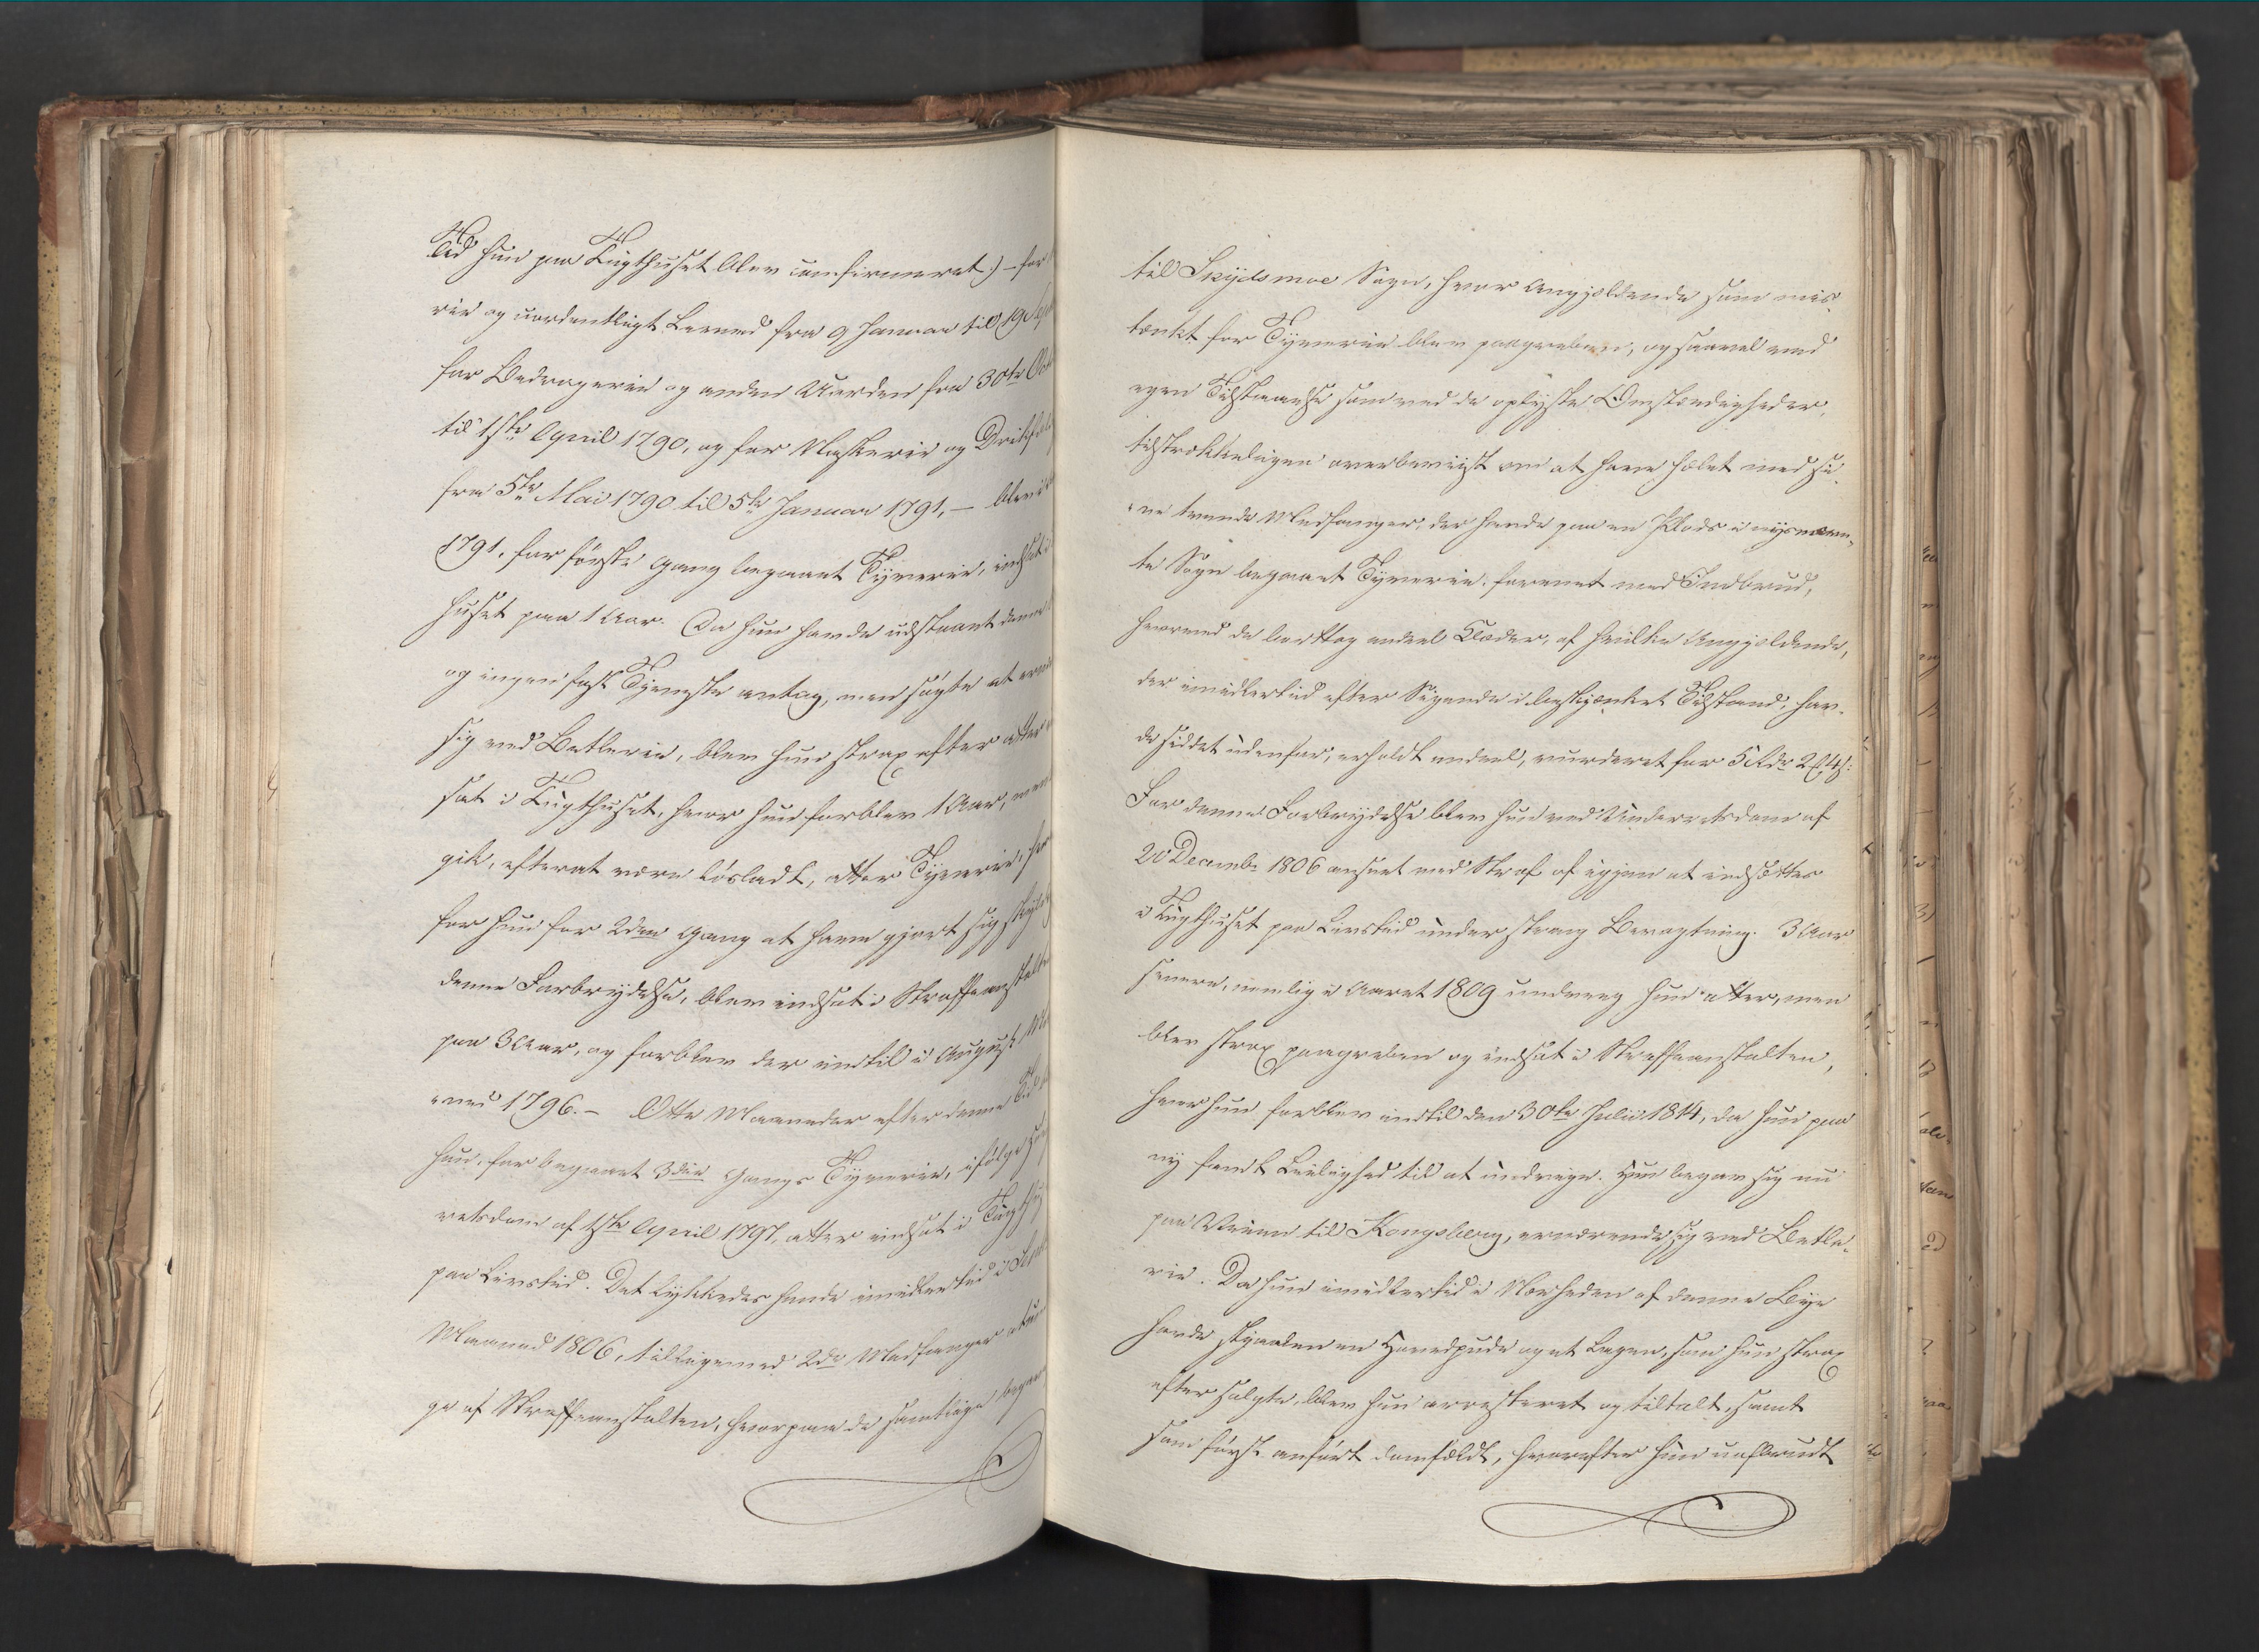 Tid hun paa Tugthuset blev confirmeret:) – for
rie og uordentligt Levned fra 9 Januar til 19 Sep
for Bedragerie og anden Uorden fra 30te Oct
til 1ste April 1790, og for Betlerie og Drik
fra 5te Mai 1790 til 5te Januar 1791, – blev i
1791, for første Gang begaaet Tyverie, indsat i
huset paa 1 Aar. Da hun havde udstaaet denne
og ingen fast Tjeneste antog, men søgte at ernæ
sig ved Betlerie, blev hun strax efter atter
sat i Tugthuset, hvor hun forblev 1 Aar, men
gik, efterat være løsladt, atter Tyverie, hvor
for hun for 2den Gang at have gjort sig skyldig
denne Forbrydelse, blev indsat i Straffeanstalten
paa 3 Aar, og forblev der indtil i August Maa
"ned 1796. – Otte Maaneder efter denne Tid
hun, for begaaet 3die Gangs Tyverie, ifølge
retsdom af 1ste April 1797, atter indsat i Tugthuset
paa Livstid. Det lykkedes hende imidlertid i Sept
Maaned 1806, tilligemed 2de Medfanger at und
ge af Straffeanstalten, hvorpaa de samtlige begav
til Skydsmoe Sogn, hvor Angjældende som mis-
tænkt for Tyverie blev paagreben, og saavel ved
egen Tilstaaelse som ved de oplyste Omstændigheder,
tilstrækkeligen overbeviist om at have holdt med si-
"ne tvende Medfanger, der havde paa en Plads i nysnævn-
te Sogn begaaet Tyverie, forenet med Indbrud,
hvorved de borttog endeel Klæder, af hvilke Angjældende,
der imidlertid efter Sigende i beskjænket Tilstand, hav-
de siddet udenfor, erholdt endeel, vurderet for 5 Rdr 2 ß:
For denne Forbrydelse blev hun ved Underretsdom af
20 Decembr 1806 anseet med Straf af igjen at indsættes
i Tugthuset paa Livstid under streng Bevogtning. 3 Aar
senere, nemlig i Aaret 1809 undveeg hun atter, men
blev strax paagreben og indsat i Straffeanstalten,
hvor hun forblev indtil den 30te Julii 1814, da hun paa
ny fandt Leilighed til at undvige. Hun begav sig nu
paa Veien til Kongsberg, ernærende sig ved Betle-
rie. Da hun imidlertid i Nærheden af denne Bye
havde stjaalen en Hovedpude og et Lagen, som hun strax
efter solgte, blev hun arresteret og tiltalt, samt
som først anført domfældt, hvorefter hun uafbrudt